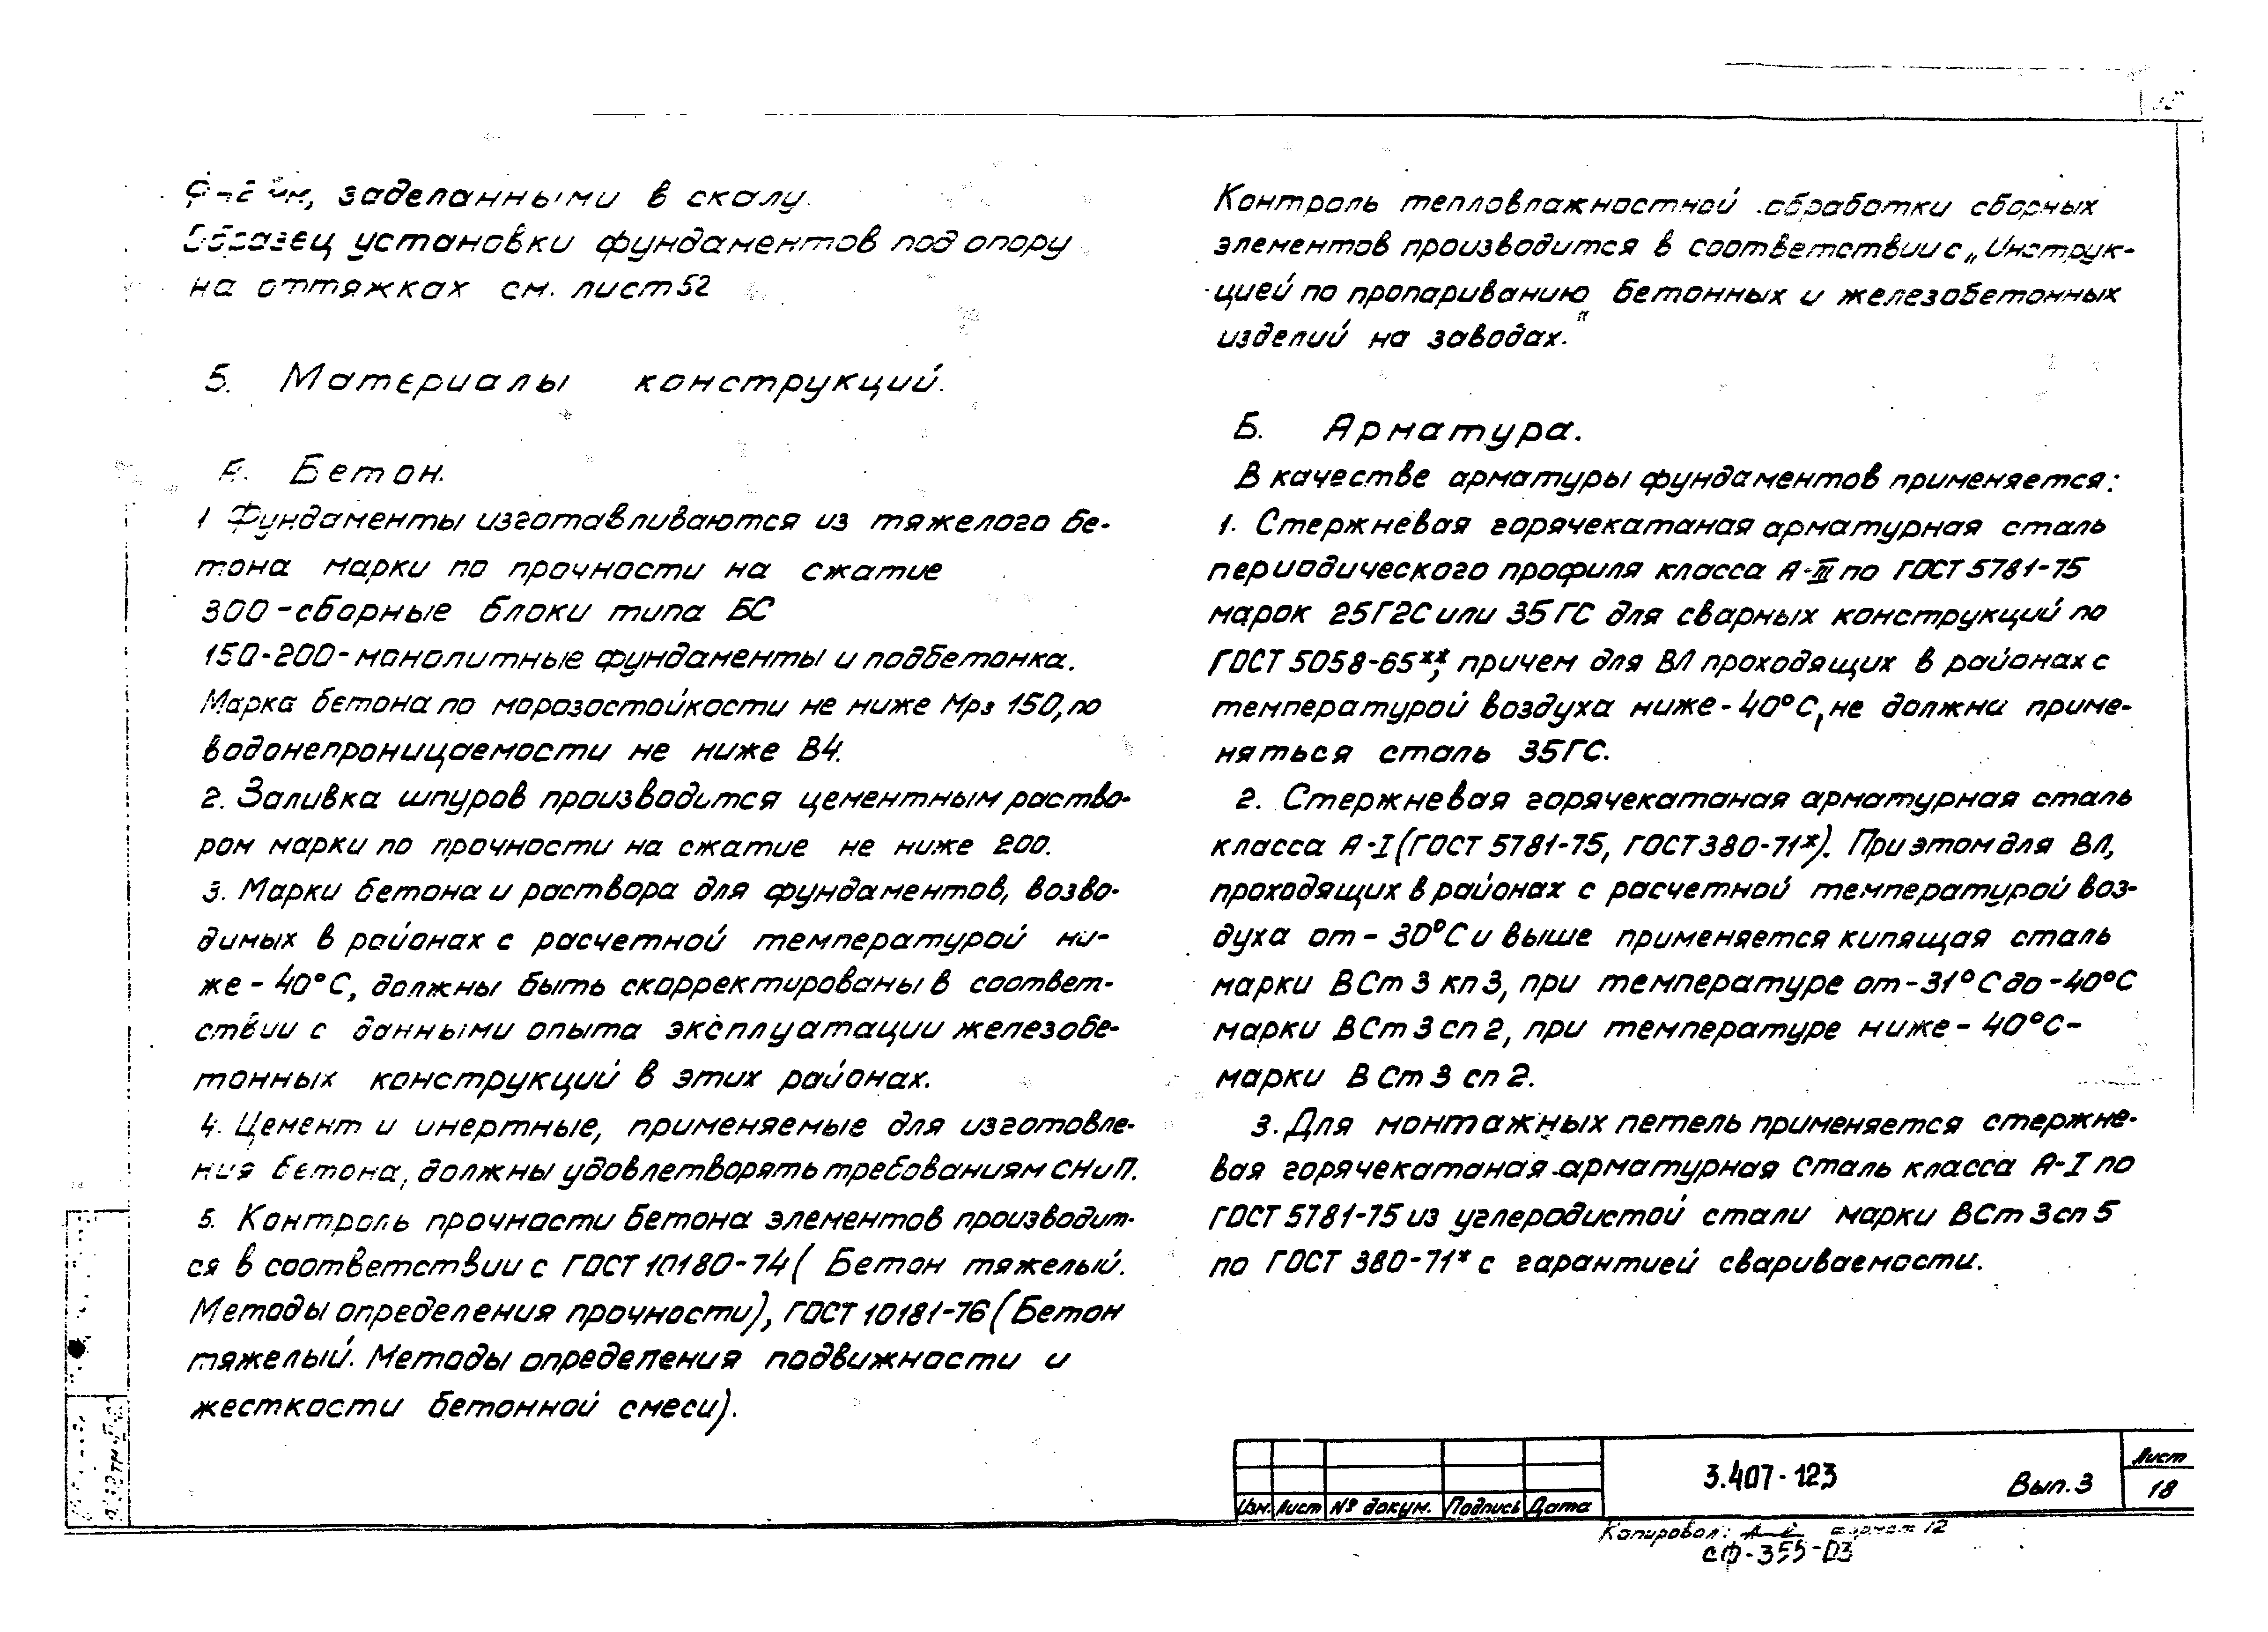 заделанными в скалу.
Образец установки фундаментов под опору
на оттяжках см. лист 52
5. Материалы конструкций.
А. Бетон.
1 Фундаменты изготавливаются из тяжелого бе-
тона марки по прочности на сжатие
300-сборные блоки типа БС
150-200-монолитные фундаменты и подбетонка.
Марка бетона по морозостойкости не ниже Мрз 150, по
водонепроницаемости не ниже В4.
2. Заливка шпуров производится цементным раство-
ром марки по прочности на сжатие не ниже 200.
3. Марки бетона и раствора для фундаментов, возво-
димых в районах с расчетной температурой ни-
же - 40°С, должны быть скорректированы в соответ-
ствии с данными опыта эксплуатации железобе-
тонных конструкций в этих районах.
4. Цемент и инертные, применяемые для изготовле-
ния бетона, должны удовлетворять требованиям СНиП.
5. Контроль прочности бетона элементов производит-
ся в соответствии с ГОСТ 10180-74 ( Бетон тяжелый.
Методы определения прочности), ГОСТ 10181-76 (Бетон
тяжелый. Методы определения подвижности и
жесткости бетонной смеси).
Контроль тепловлажностной обработки сборных
элементов производится в соответствии с „Инструк-
цией по пропариванию бетонных и железобетонных
изделий на заводах."
Б. Арматура.
В качестве арматуры фундаментов применяется:
1. Стержневая горячекатаная арматурная сталь
периодического профиля класса А-III по ГОСТ 5781-75
марок 25Г2С или 35ГС для сварных конструкций по
ГОСТ 5058-65**, причем для ВЛ проходящих в районах с
температурой воздуха ниже - 40°С, не должна приме-
няться сталь 35ГС.
2. Стержневая горячекатаная арматурная сталь
класса А-I (ГОСТ 5781-75, ГОСТ 380-71*). При этом для ВЛ,
проходящих в районах с расчетной температурой воз-
духа от - 30°С и выше применяется кипящая сталь
марки ВСт 3 кп 3, при температуре от - 31°С до - 40°С
марки ВСт 3 сп 2, при температуре ниже - 40°С -
марки ВСт 3 сп 2.
3. Для монтажных петель применяется стержне-
вая горячекатаная арматурная сталь класса А-I по
ГОСТ 5781-75 из углеродистой стали марки ВСт 3 сп 5
по ГОСТ 380-71* с гарантией свариваемости.
3.407-123 Вып. 3
Лист
18
Изм. Лист № докум. Подпись Дата
Копировал: формат 12
СФ-355-03